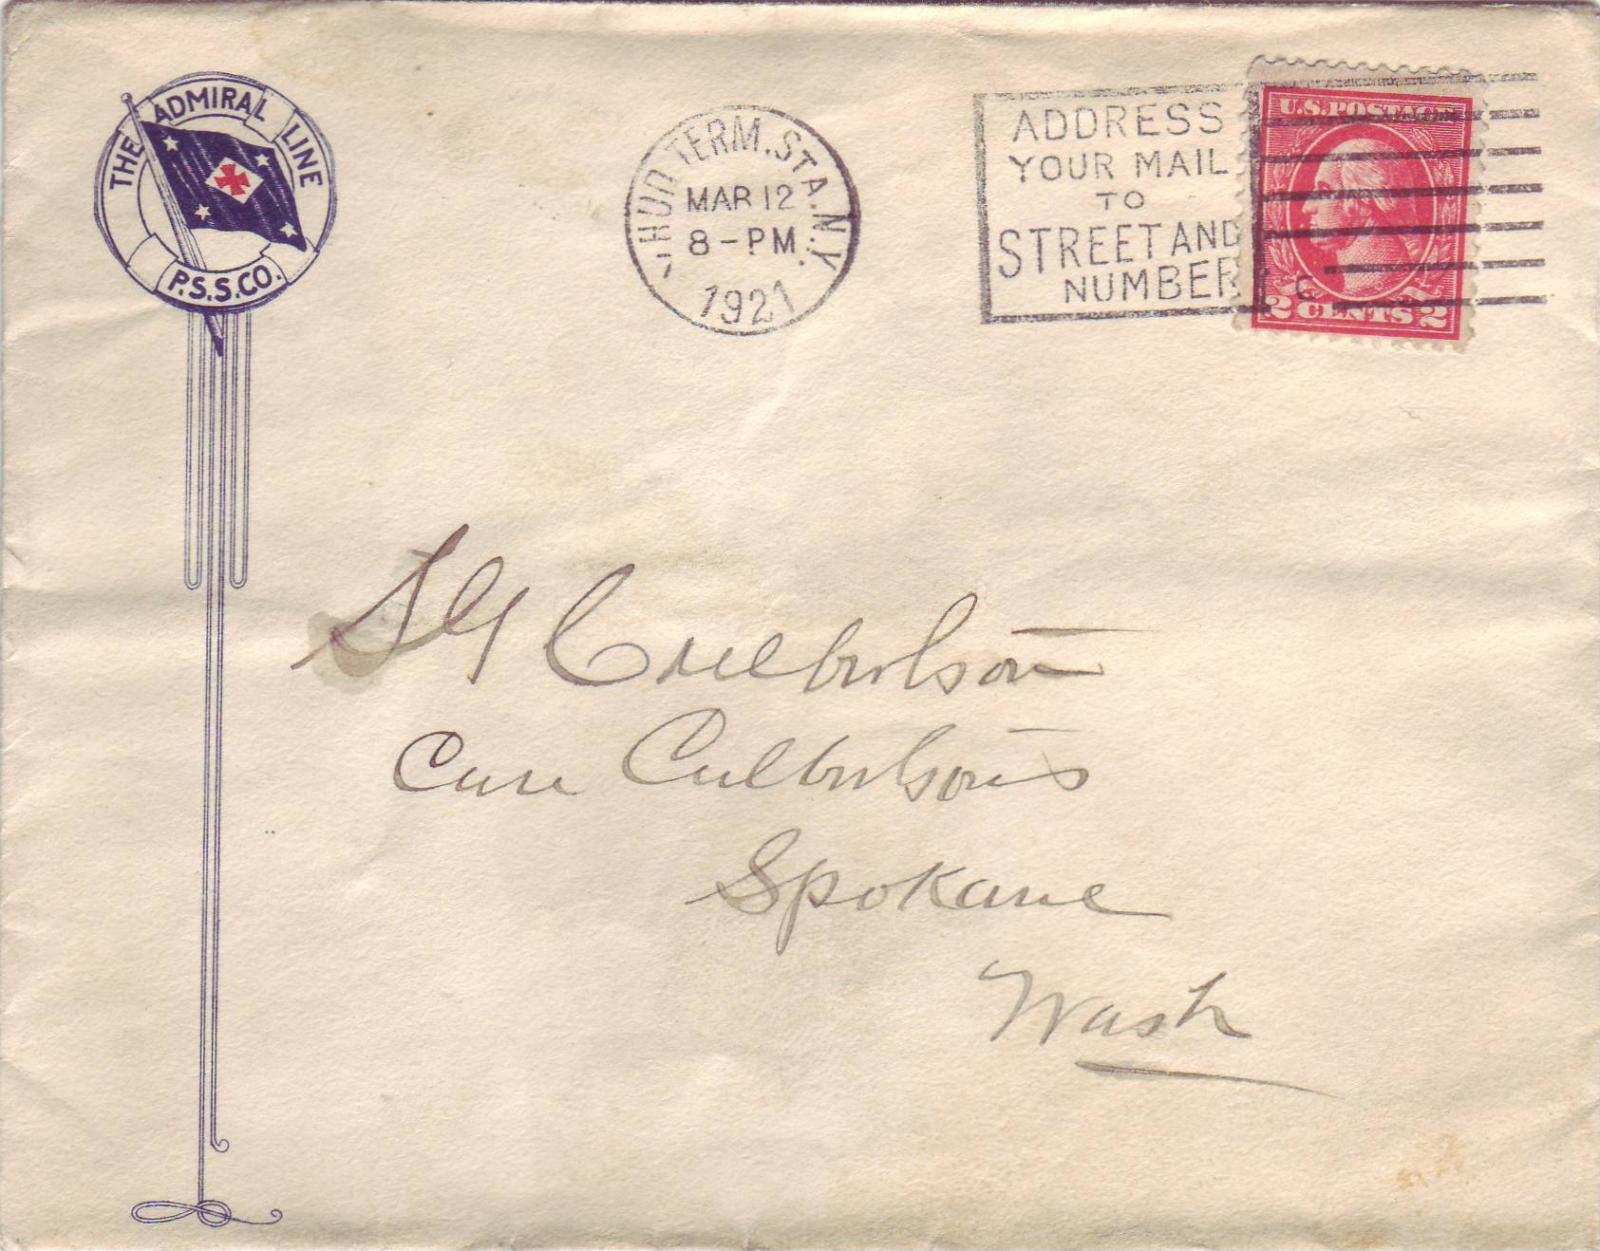 THE ADMIRAL LINE
P.S.S.CO.
HUD TERM. STA. N.Y.
MAR 12
8-PM
1921
ADDRESS
YOUR MAIL
TO
STREET AND
NUMBER
C
U.S. POSTAGE
2 CENTS 2
Culbertson
Care Culbertson's
Spokane
Wash